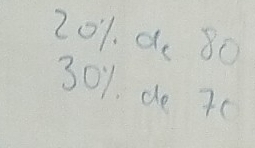 20% de 80
30% de 70